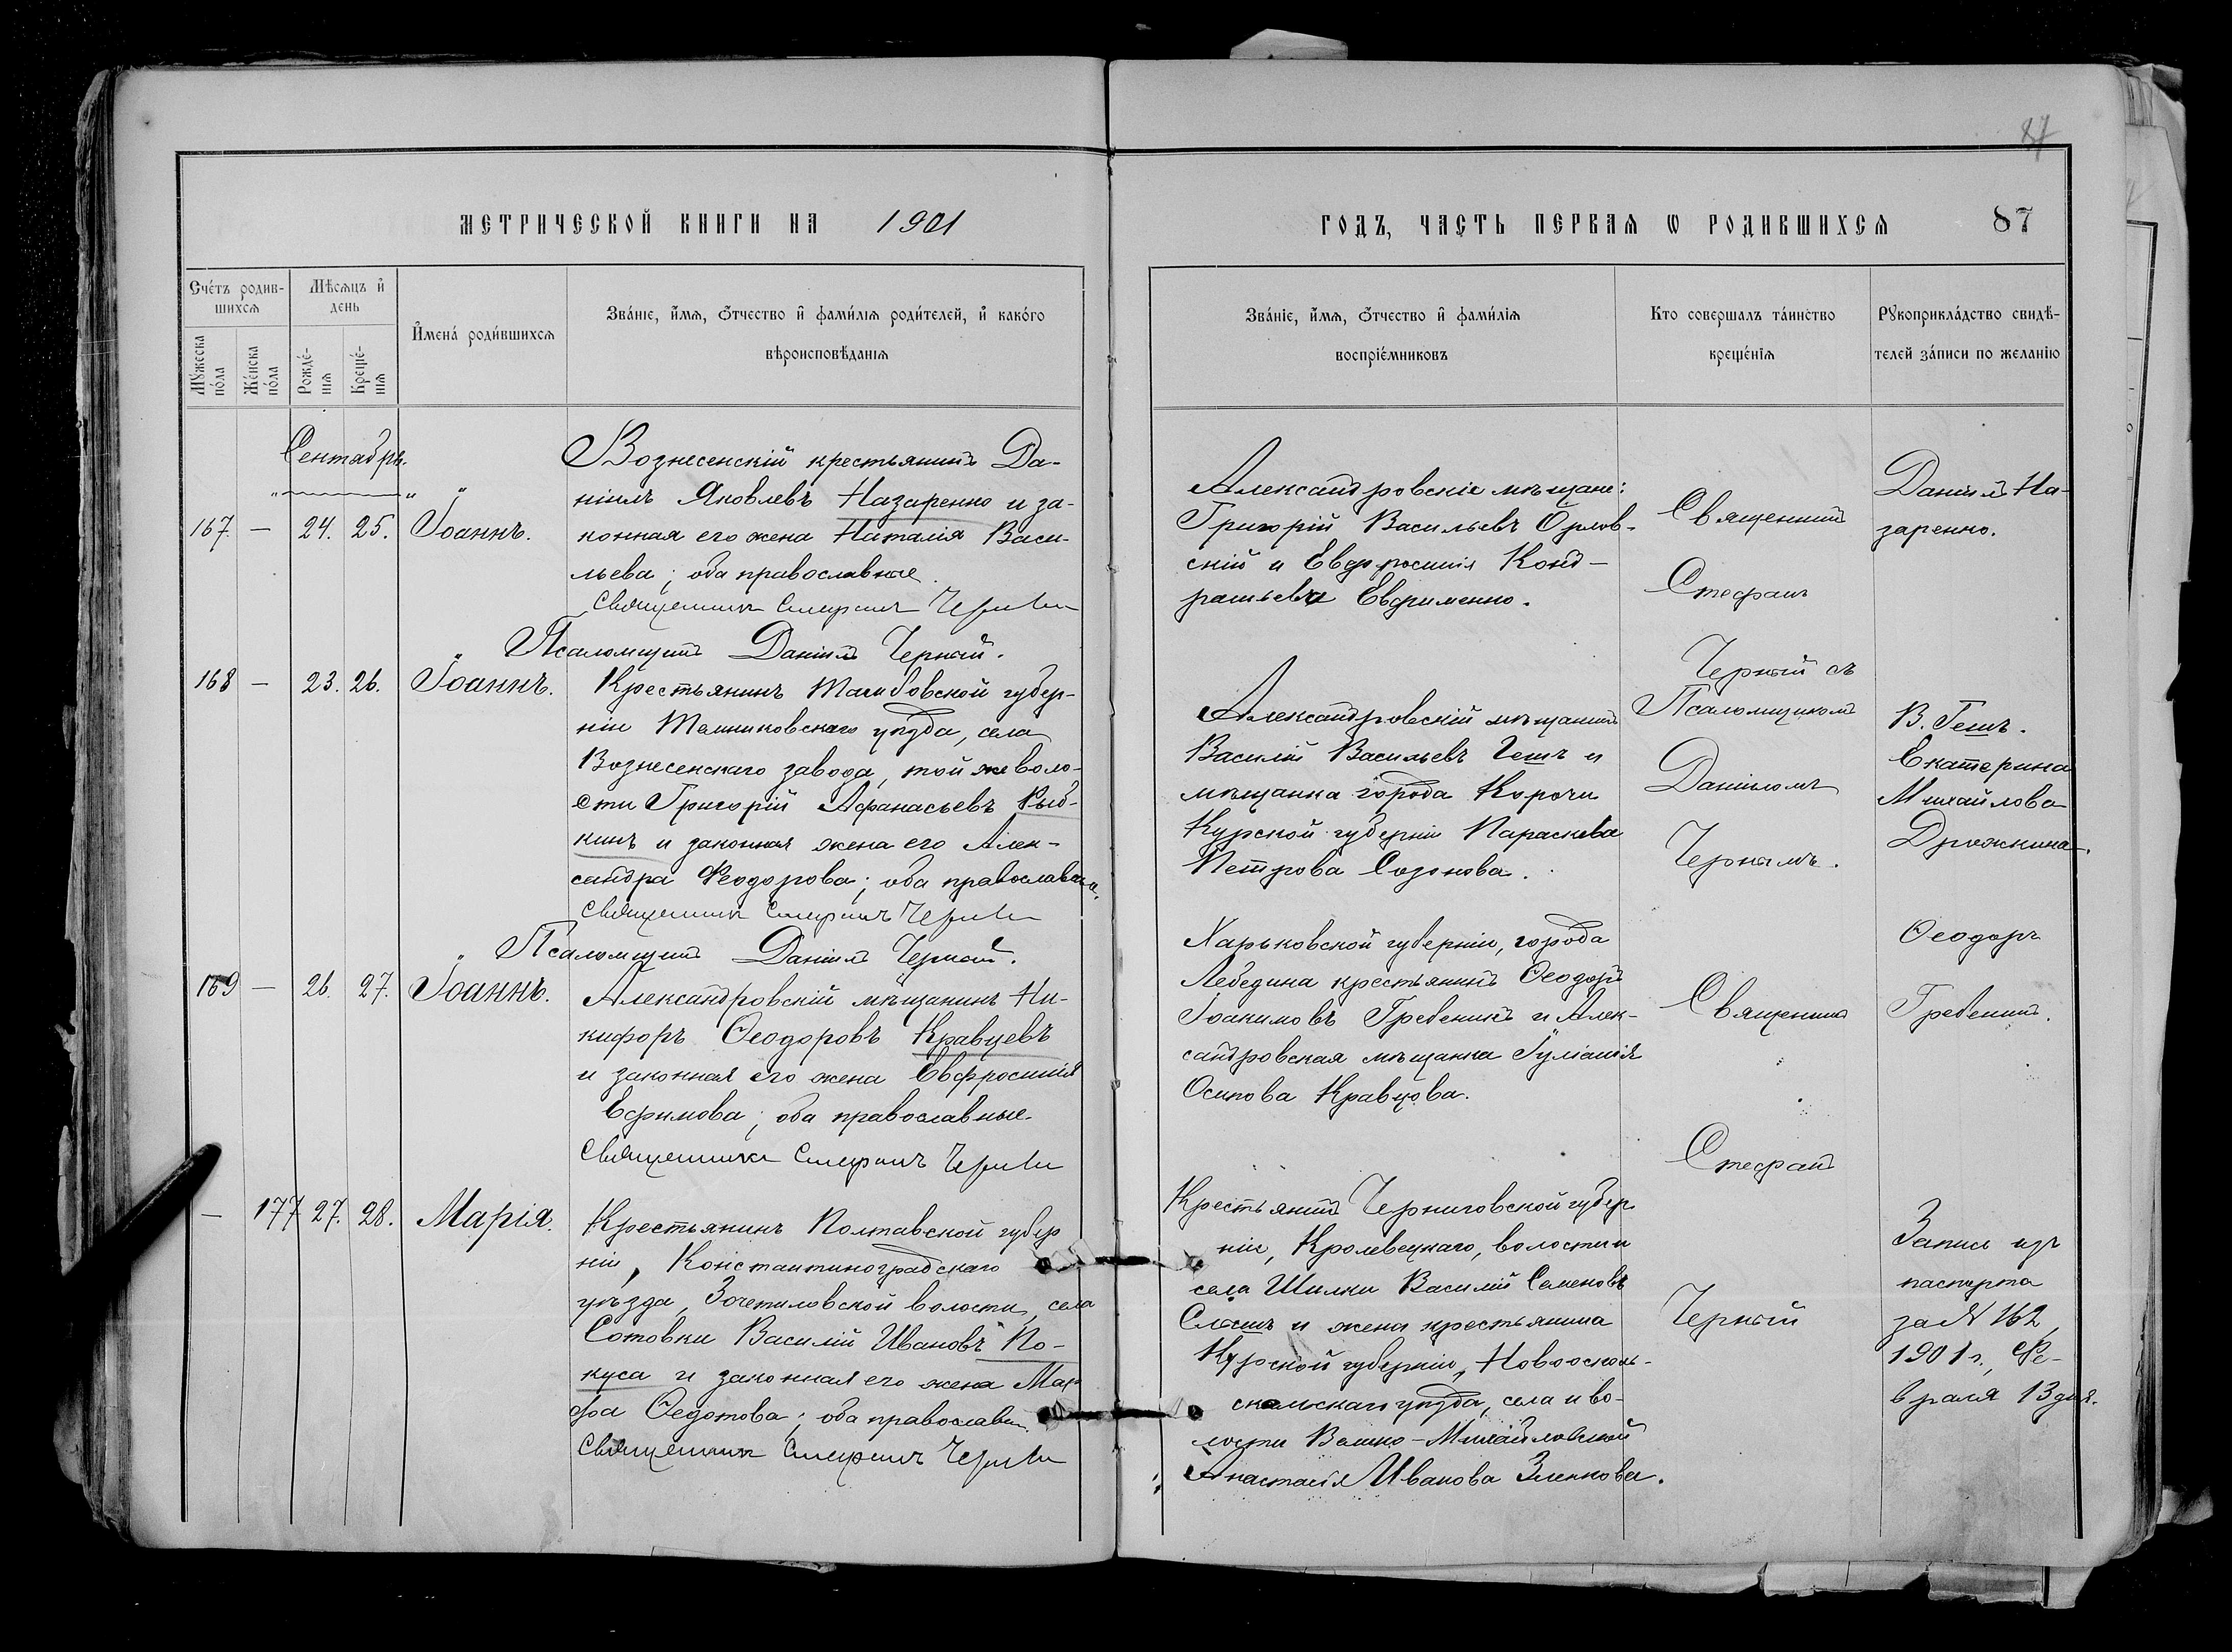 87
МЕТРИЧЕСКОЙ КНИГИ НА 1901
ГОДЪ, ЧАСТЬ ПЕРВАЯ Ѡ РОДИВШИХСЯ 87
Счетъ родив-
шихся
Мужеска
пола
Женска
пола
Мѣсяцъ и
день
Рожде-
нія
Креще-
нія
Имена родившихся
Званіе, имя, отчество и фамилія родителей, и какого
вѣроисповѣданія
Званіе, имя, отчество и фамилія
воспріемниковъ
Кто совершалъ таинство
крещенія
Рукоприкладство свидѣ-
телей записи по желанію
Сентябрь.
167 — 24. 25. Іоаннъ.
Вознесенскій крестьянинъ Да-
ніилъ Яковлевъ Назаренко и за-
конная его жена Наталія Васи-
льева; оба православные.
Священникъ Стефанъ Черный
Псаломщикъ Даніилъ Черный.
Александровскіе мѣщане:
Григорій Васильевъ Орлов-
скій и Евфросинія Конд-
ратьева Евфименко.
Священникъ
Стефанъ
Черный съ
Псаломщикомъ
Даніиломъ
Чернымъ.
Даніилъ На-
заренко.
168 — 23. 26. Іоаннъ.
Крестьянинъ Тамбовской губер-
ніи Темниковскаго уѣзда, села
Вознесенскаго завода, той же воло-
сти Григорій Афанасьевъ Рыб-
кинъ и законная жена его Алек-
сандра Феодорова; оба православные.
Священникъ Стефанъ Черный
Псаломщикъ Даніилъ Черный.
Александровскій мѣщанинъ
Василій Васильевъ Гешъ и
мѣщанка города Корочи
Курской губерніи Параскева
Петрова Созонова.
В. Гешъ.
Екатерина
Михайлова
Дрожкина.
169 — 26. 27. Іоаннъ.
Александровскій мѣщанинъ Ни-
кифоръ Ѳеодоровъ Кравцевъ
и законная его жена Евфросинія
Ефимова; оба православные.
Священникъ Стефанъ Черный
Харьковской губерніи, города
Лебедина крестьянинъ Ѳеодоръ
Іоакимовъ Гребеникъ и Алек-
сандровская мѣщанка Іуліанія
Осипова Кравцова.
Священникъ
Стефанъ
Черный
Ѳеодоръ
Гребеникъ.
— 177 27. 28. Марія.
Крестьянинъ Полтавской губер
ніи, Константиноградскаго
уѣзда, Зачепиловской волости, села
Сотовки Василій Ивановъ По-
куса и законная его жена Мар-
фа Ѳедотова; оба православн.
Священникъ Стефанъ Черный
Крестьянинъ Черниговской губер-
ніи, Кролевецкаго, волости и
села Василій Семеновъ
и жена крестьянина
Курской губерніи, Новоосколь-
скаго уѣзда, села и во-
лости Велико-Михайловской
Анастасія Иванова Зленкова.
Запись изъ
паспорта
за № 162,
1901 г., Фе-
враля 13 дня.